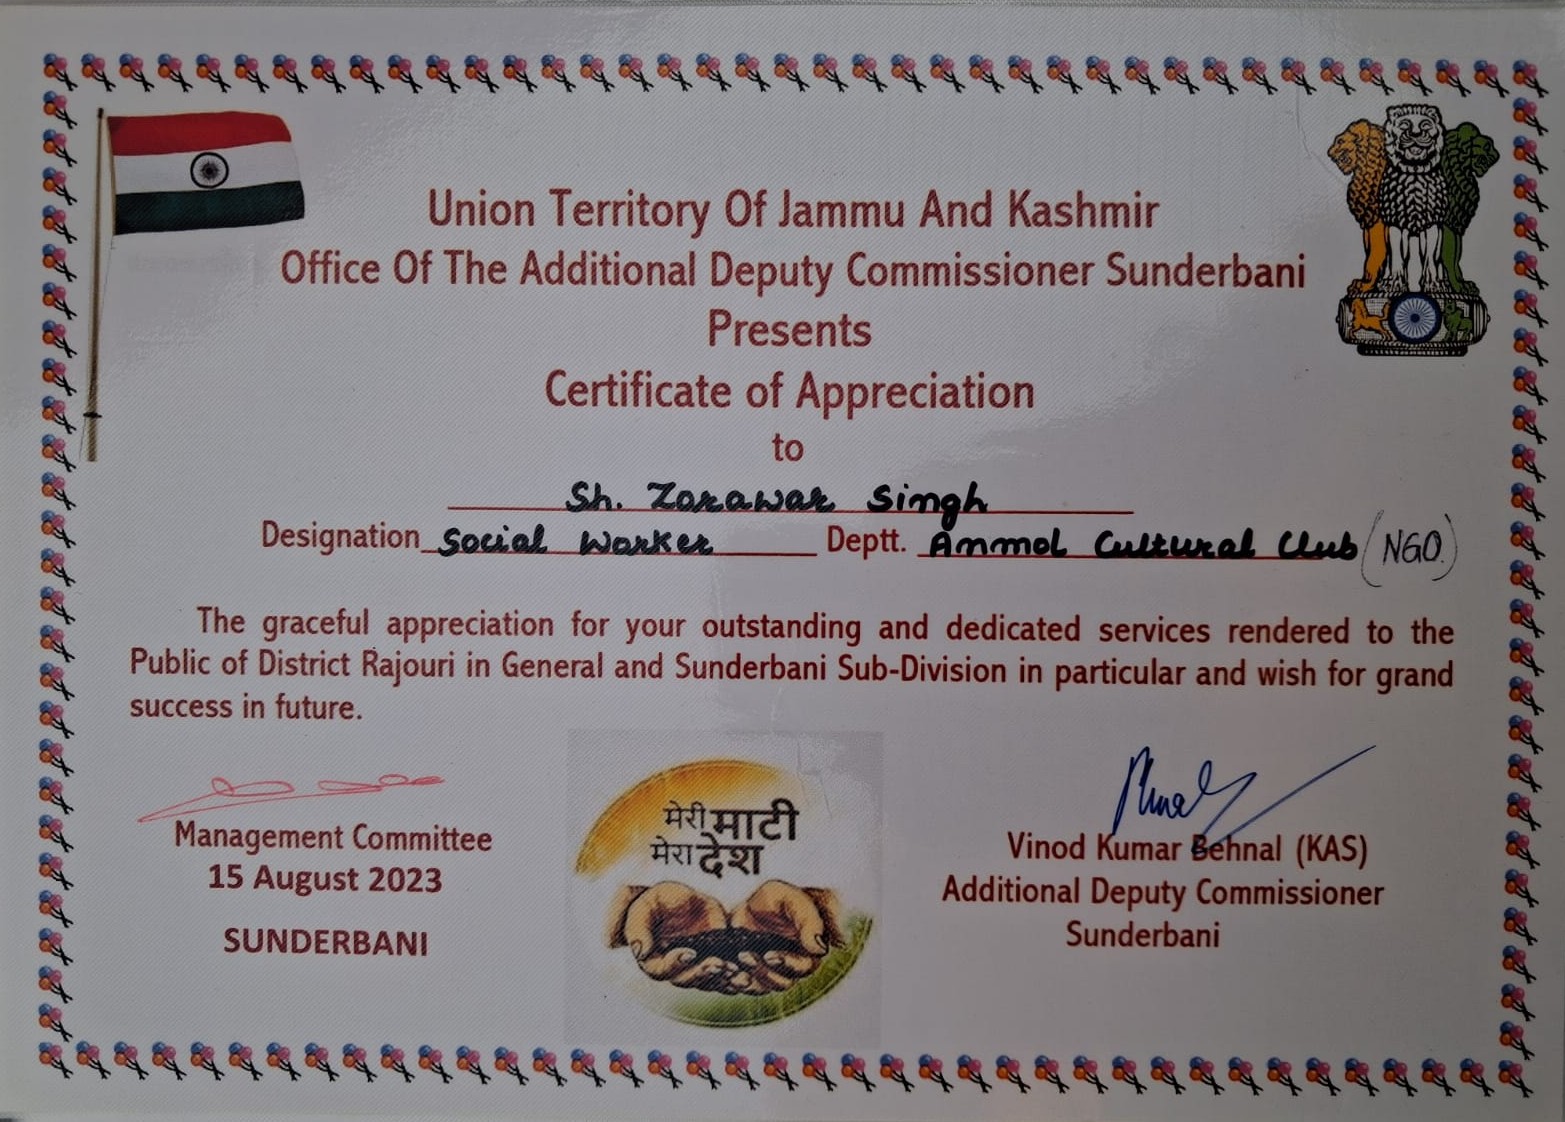 Union Territory Of Jammu And Kashmir
Office Of The Additional Deputy Commissioner Sunderbani
Presents
Certificate of Appreciation
to
Sh. Zorawar Singh
Designation Social Worker Deptt. Anmol Cultural Club (NGO.)
The graceful appreciation for your outstanding and dedicated services rendered to the
Public of District Rajouri in General and Sunderbani Sub-Division in particular and wish for grand
success in future.
Management Committee
15 August 2023
SUNDERBANI
मेरी माटी
मेरा देश
Vinod Kumar Behnal (KAS)
Additional Deputy Commissioner
Sunderbani